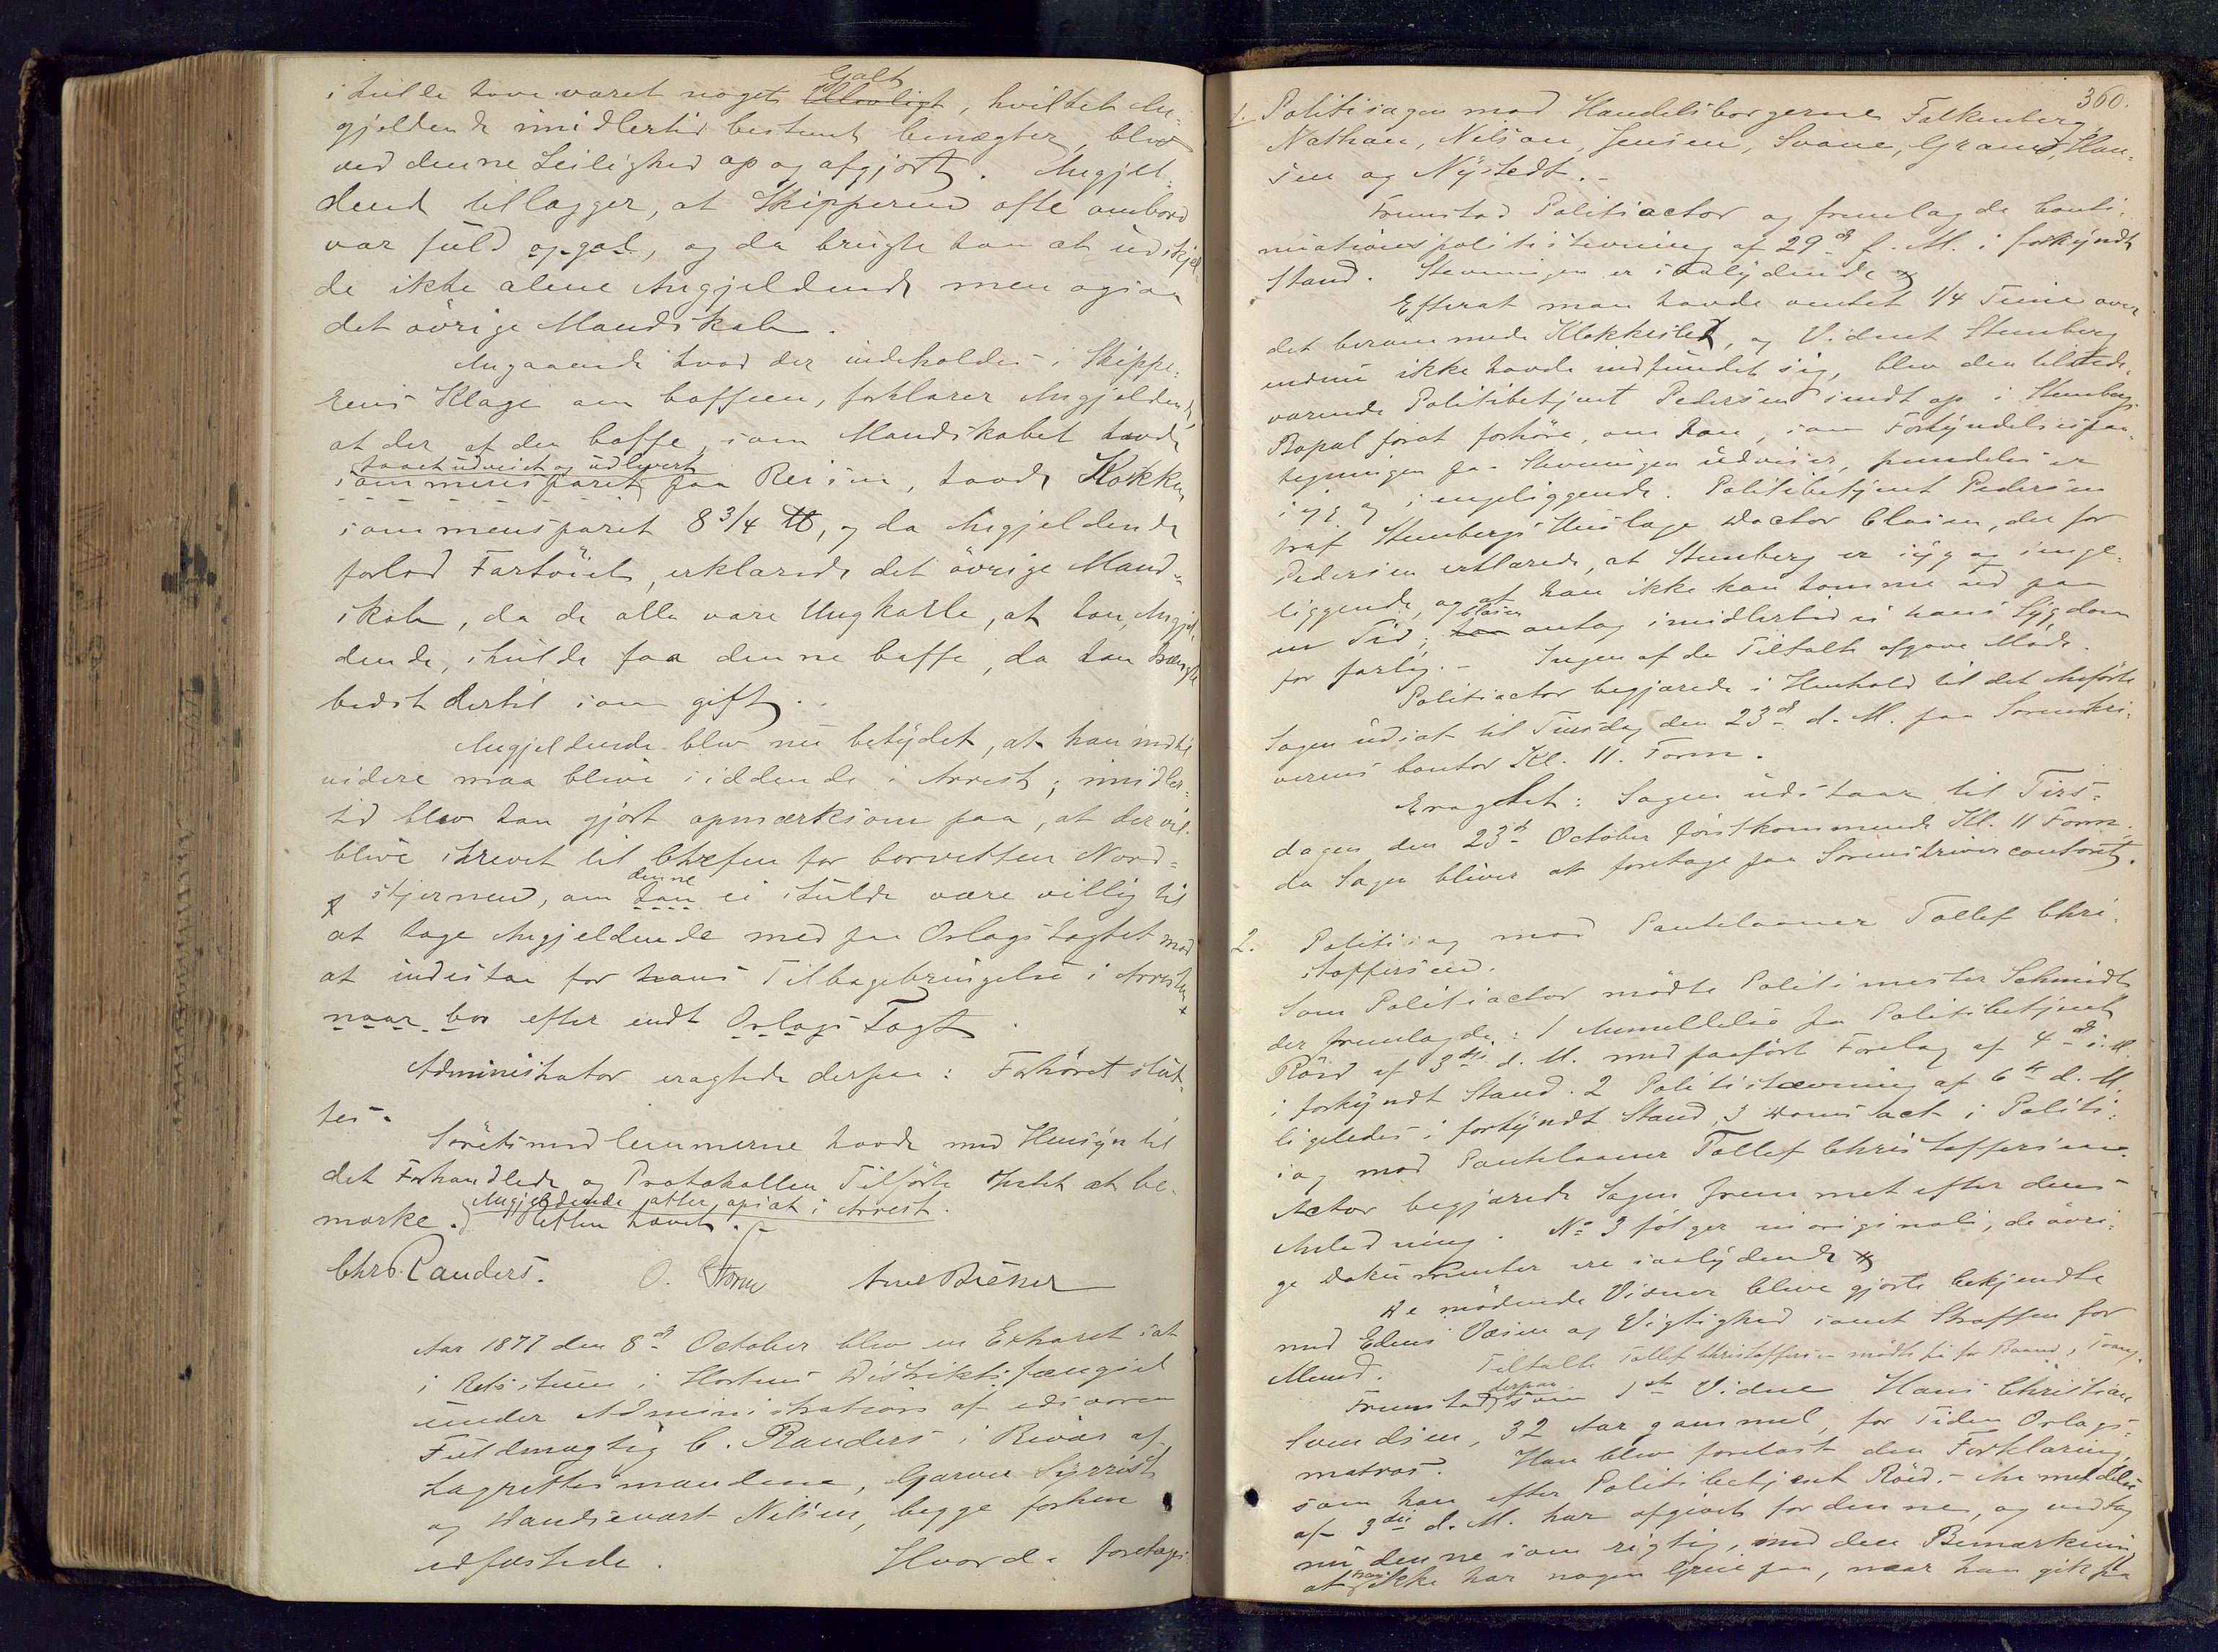 skulde have været noget Galt Ulovligt, hvilket An-
gjeldende imidlertid bestemt benægter, blev
ved denne Leilighed op og afgjort. Angjel-
dende tillægger, at Skipperen ofte ombord
var fuld og gal, og da brugte han at udskjel-
de ikke alene Angjeldende men ogsaa
det övrige Mandskab.
Angaaende hvad der indeholdes i Skippe-
rens Klage om Caffeen, forklarer Angjeldende,
at der af den Caffe, som Mandskabet havde
faaet udveiet og udleveret
sammensparet paa Reisen, havde Kokken
sammensparet 8 3/4 ℔, og da Angjeldende
forlod Fartöiet, erklærede det övrige Mand-
skab, da de alle vare Ungkarle, at han, Angjel-
dende, skulde faa denne Caffe, da han trængte
bedst dertil som gift.
Angjeldende blev nu betydet, at han indtil
videre maa blive siddende i Arrest; imidler-
tid blev han gjort opmærksom paa, at der vil
blive skrevet til Chefen for Corvetten Nord-
stjernen, om denne han ei skulde være villig til
at tage Angjeldende med paa Orlogstogtet mod
at indestaa for hans Tilbagebringelse i Arresten
naar hos efter endt Orlogs Togt.
Administrator eragtede derpaa: Forhöret slut-
tes.
Söretsmedlemmerne havde med Hensyn til
det Forhandlede og Protokollen Tilförte Intet at be-
mærke. Angjeldende atter afsat i Arrest.
Retten hævet.
Chr. Randers. O. Storm
Aar 1877 den 8de October blev en Extraret sat
i Retsstuen i Hortens Distriktsfængsel
under Administration af edsvoren
Fuldmægtig C. Randers i Beværelse af
Lagrettesmændene, Garver Syrrist
og Vandsevært Nilsen, begge forhen
edfæstede. Hvorda foretages:
360.
1. Politisagen mod Handelsborgerne Falkenberg,
Nathan, Nilson, Jensen, Svane, Gram, Han-
sen og Nystedt.-
Fremstod Politiactor og fremlagde Conti-
nuationspolitistevning af 29de f. M. i forkyndt
Stand. Stevningen er saalydende
Efterat man havde ventet 1/4 Time over
det berammede Klokkeslet, og Vidnet Stenberg
endnu ikke havde indfundet sig, blev den tilstede-
værende Politibetjent Pedersen sendt op i Stenbergs
Bopæl forat forhöre, om han, som Forkyndelsespaa-
tegningen paa Stevningen udviser, fremdeles er
syg og sengeliggende. Politibetjent Pedersen
traf Stenbergs Huslæge Doctor Clasen, der for
Pedersen erklærede, at Stenberg er syg og senge-
liggende, og at han ikke kan komme ud paa
en Tid; Clasen han antog imidlertid ei hans Sygdom
for farlig.- Ingen af de Tiltalte afgave Möde.
Politiactor begjærede i Henhold til det Anförte
Sagen udsat til Tirsdag den 23de d. M. paa Sorenskri-
verens Contor Kl. 11. Form.
Eragtet: Sagen udstaar til Tirs-
dagen den 23de October förstkommende Kl. 11 Form.
da Sagen bliver at foretage paa Sorenskrivercontoret.
2. Politisag mod Pantelaaner Tollef Chri-
stoffersen.
Som Politiactor mödte Politimester Schmidt
der fremlagde: 1 Anmeldelse fra Politibetjent
Röed af 3die d. M. med paafört Forelæg af 4de s. M.
i forkyndt Stand. 2 Politistævning af 6te d. M.
ligeledes i forkyndt Stand, 3 Doms act i Politi-
sag mod Pantelaaner Tollef Christoffersen.
Actor begjærede Sagen fremmet efter dens
Anledning. No 3 fölger in originali, de övri-
ge Dokumenter ere saalydende
De mödende Vidner bleve gjorte bekjendte
med Edens Væsen og Vigtighed samt Straffen for
Mened. Tiltalte Tollef Christoffersen mödte fri for Baand og Tvang.
Fremstod derpaa som 1ste Vidne Hans Christian
Svendsen, 32 Aar gammel, for Tiden Orlogs-
matros. Han blev forelæst den Forklaring,
som han efter Politibetjent Röed.- Anmeldelse
af 3die d. M. har afgivet for denne, og vedtog
nu denne som rigtig, med den Bemærkning,
at han ikke har nogen Greie paa, naar han gik fra